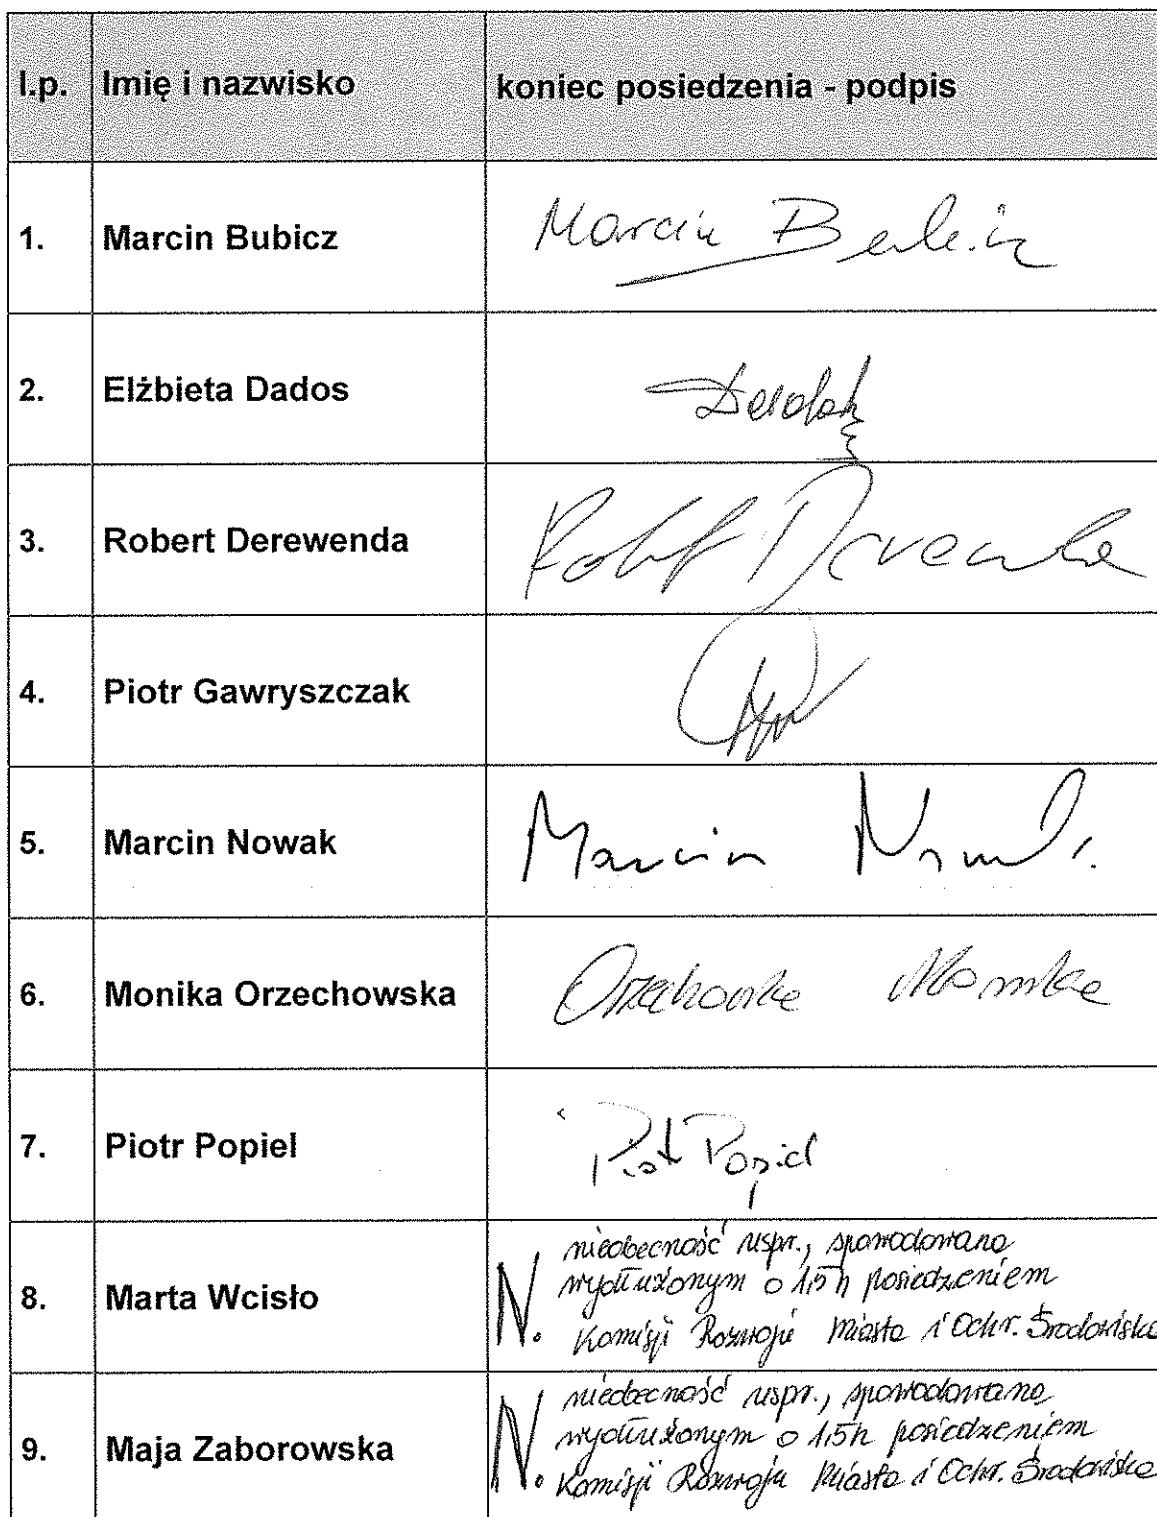 l.p. Imię i nazwisko koniec posiedzenia - podpis
1. Marcin Bubicz Marcin Bubicz
2. Elżbieta Dados
3. Robert Derewenda Robert Derewenda
4. Piotr Gawryszczak
5. Marcin Nowak Marcin Nowak
6. Monika Orzechowska Orzechowska Monika
7. Piotr Popiel Piotr Popiel
8. Marta Wcisło N. nieobecność uspr., spowodowana
wydłużonym o 1,5 h posiedzeniem
Komisji Rozwoju Miasta i Ochr. Środowiska
9. Maja Zaborowska N. nieobecność uspr., spowodowana
wydłużonym o 1,5h posiedzeniem
Komisji Rozwoju Miasta i Ochr. Środowiska